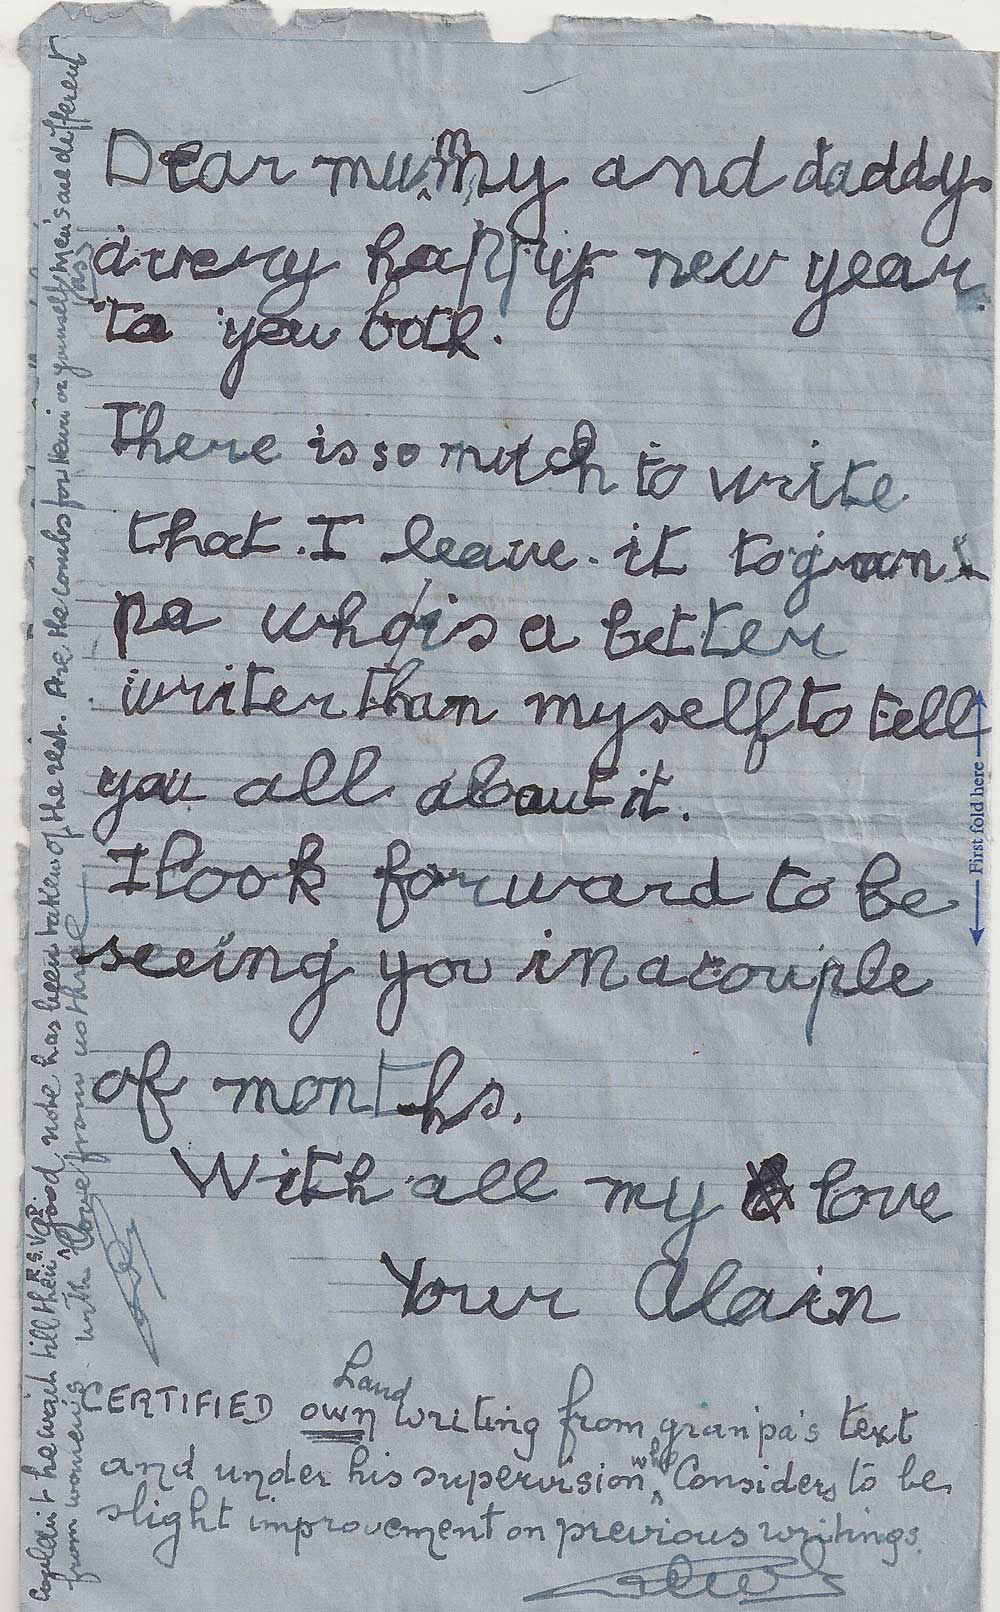 Dear mummy and daddy
a very happy new year
to you both.
There is so much to write
that. I leave. it to gran-
pa who is a better
writer than myself to tell
you all about it.
I look forward to be
seeing you in a couple
of months.
With all my love
Your Alain
CERTIFIED own hand writing from granpa's text
and under his supervision who Considers to be
slight improvement on previous writings.
Couldn't he wait till then R.S.V.P. Good note has been taken of the rest. Are the combs for Henri or yourself (as) men's are different
from women's with love from us three
First fold here